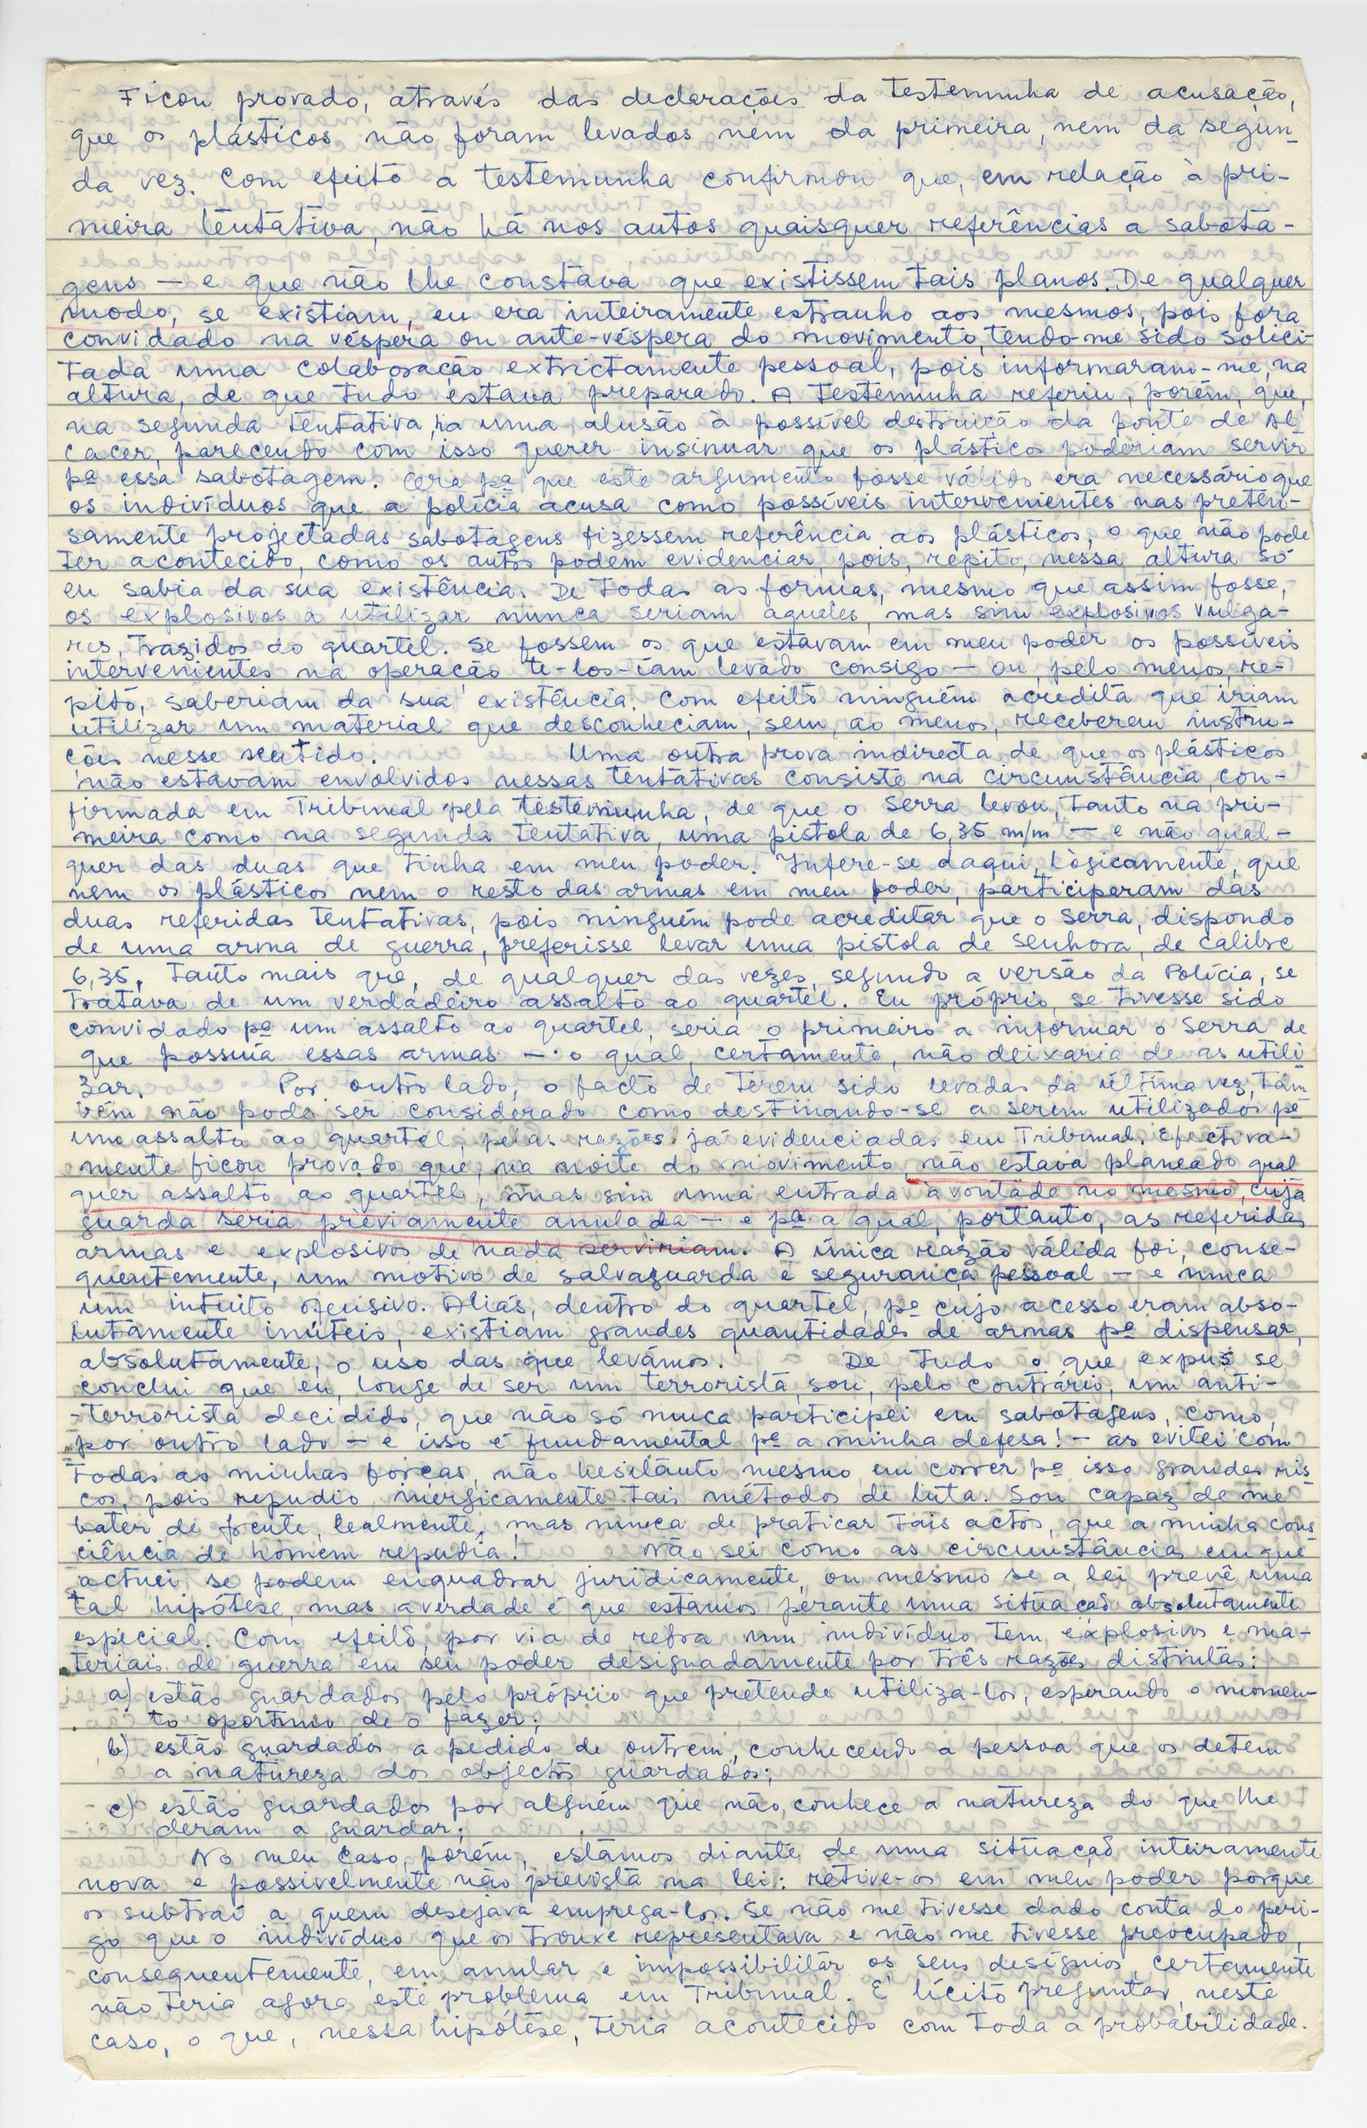 Ficou provado, através das declarações da testemunha de acusação,
que os plásticos não foram levados nem da primeira, nem da segun-
da vez. Com efeito a testemunha confirmou que, em relação à pri-
meira tentativa, não há nos autos quaisquer referências a sabota-
gens — e que não lhe constava que existissem tais planos. De qualquer
modo, se existiam, eu era inteiramente estranho aos mesmos, pois fora
convidado na véspera ou ante-véspera do movimento, tendo-me sido solici-
tada uma colaboração extrictamente pessoal, pois informaram-me, na
altura, de que tudo estava preparado. A testemunha referiu, porém, que,
na segunda tentativa, há uma alusão à possível destruição da ponte de Al
cácer, parecendo com isso querer insinuar que os plásticos poderiam servir
pª essa sabotagem. Ora pª que este argumento fosse válido era necessário que
os indivíduos que a polícia acusa como possíveis intervenientes nas preten-
samente projectadas sabotagens fizessem referência aos plásticos, o que não pode
ter acontecido, como os autos podem evidenciar, pois, repito, nessa altura só
eu sabia da sua existência. De todas as formas, mesmo que assim fosse,
os explosivos a utilizar nunca seriam aqueles, mas sim explosivos vulga-
res, trazidos do quartel. Se fossem os que estavam em meu poder os possíveis
intervenientes na operação te-los-iam levado consigo — ou, pelo menos, re-
pito, saberiam da sua existência. Com efeito ninguém acredita que iriam
utilizar um material que desconheciam, sem, ao menos, receberem instru-
ções nesse sentido. Uma outra prova indirecta de que os plásticos
não estavam envolvidos nessas tentativas consiste na circunstância, con-
firmada em Tribunal pela testemunha, de que o Serra levou, tanto na pri-
meira como na segunda tentativa, uma pistola de 6,35 m/m — e não qual-
quer das duas que tinha em meu poder. Infere-se daqui, lògicamente, que
nem os plásticos nem o resto das armas em meu poder, participaram das
duas referidas tentativas, pois ninguém pode acreditar que o Serra, dispondo
de uma arma de guerra, preferisse levar uma pistola de senhora, de calibre
6,35, tanto mais que, de qualquer das vezes, segundo a versão da Polícia, se
tratava de um verdadeiro assalto ao quartel. Eu próprio, se tivesse sido
convidado pª um assalto ao quartel, seria o primeiro a informar o Serra de
que possuía essas armas — o qual, certamente, não deixaria de as utili
zar. Por outro lado, o facto de terem sido levadas da última vez, tam
bém não pode ser considerado como destinando-se a serem utilizados pª
um assalto ao quartel, pelas razões já evidenciadas em Tribunal. Efectiva-
mente ficou provado que, na noite do movimento, não estava planeado qual
quer assalto ao quartel, mas sim uma entrada à vontade no mesmo, cuja
guarda seria previamente anulada — e pª a qual, portanto, as referidas
armas e explosivos de nada serviriam. A única razão válida foi, conse-
quentemente, um motivo de salvaguarda e segurança pessoal — e nunca
um intuito ofensivo. Aliás, dentro do quartel, pª cujo acesso eram abso-
lutamente inúteis, existiam grandes quantidades de armas pª dispensar,
absolutamente, o uso das que levámos. De tudo o que expus se
conclui que eu, longe de ser um terrorista, sou, pelo contrário, um anti-
-terrorista decidido, que não só nunca participei em sabotagens, como,
por outro lado — e isso é fundamental pª a minha defesa! — as evitei com
todas as minhas forças, não hesitanto mesmo em correr pª isso grandes ris
cos, pois repudio inèrgicamente tais métodos de luta. Sou capaz de me
bater de frente, lealmente, mas nunca de praticar tais actos, que a minha cons
ciência de homem repudia! Não sei como as circunstâncias em que
actuei se podem enquadrar juridicamente, ou mesmo se a lei prevê uma
tal hipótese, mas a verdade é que estamos perante uma situação absolutamente
especial. Com efeito, por via de regra um indivíduo tem explosivos e ma-
teriais de guerra em seu poder designadamente por três razões distintas:
a) estão guardados pelo próprio que pretende utiliza-los, esperando o momen-
to oportuno de o fazer;
b) estão guardados a pedido de outrem, conhecendo a pessoa que os detem
a natureza dos objectos guardados;
c) estão guardados por alguém que não conhece a natureza do que lhe
deram a guardar;
No meu caso, porém, estamos diante de uma situação inteiramente
nova e possivelmente não prevista na lei: retive-os em meu poder porque
os subtraí a quem desejava emprega-los. Se não me tivesse dado conta do peri-
go que o indivíduo que os trouxe representava e não me tivesse preocupado,
consequentemente, em anular e impossibilitar os seus desígnios, certamente
não teria agora este problema em Tribunal. É lícito preguntar, neste
caso, o que, nessa hipótese, teria acontecido com toda a probabilidade.